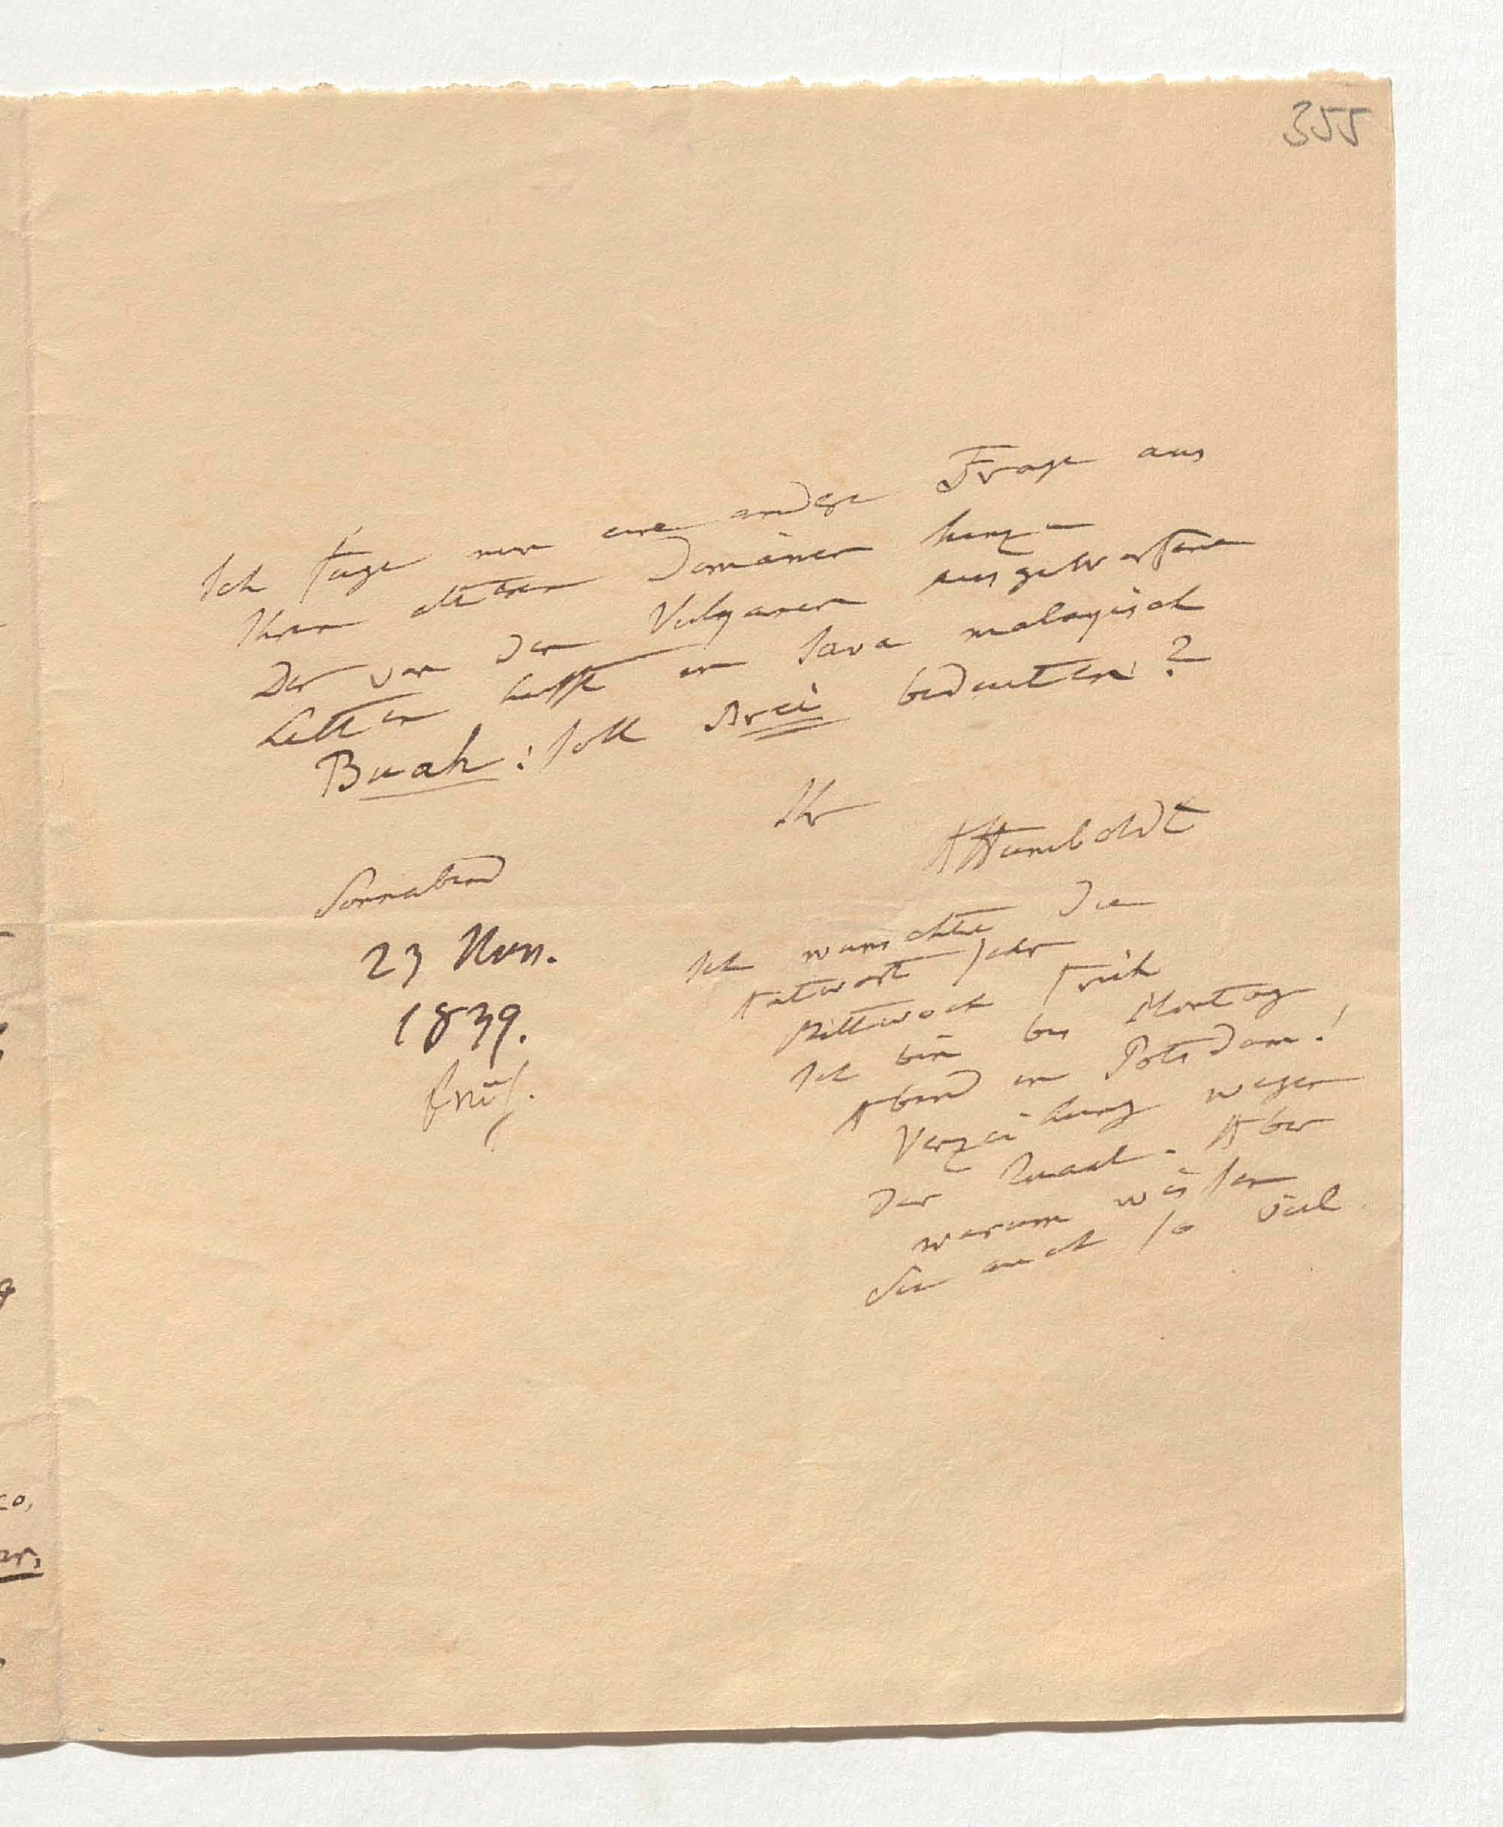 355
Ich füge nur eine andere Frage aus
Ihren älteren Domänen hinzu
Der von den Vulganen ausgeworfene
Letten heißt in Java malayisch
Buah: soll Brei bedeuten?
Ihr
AHumboldt
Sonnabend
23 Nov.
1839.
früh.
Ich wünschte die
Antwort sehr
Mittwoch früh
Ich bin bis Montag
Abend in Potsdam!
Verzeihung wegen
der Quaal. Aber
warum wissen
Sie auch so viel
co,